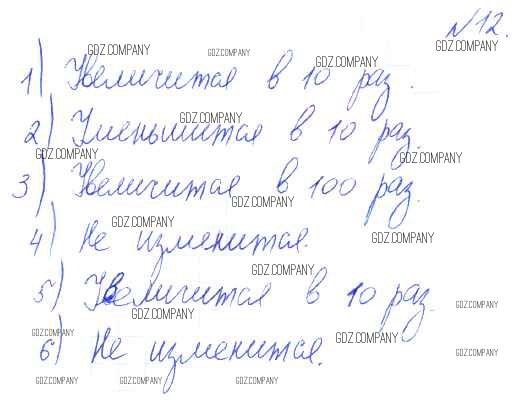 №12.
GDZ.COMPANY GDZ.COMPANY GDZ.COMPANY
1) Увеличится в 10 раз.
GDZ.COMPANY
GDZ.COMPANY GDZ.COMPANY
2) Уменьшится в 10 раз.
GDZ.COMPANY GDZ.COMPANY
3) Увеличится в 100 раз.
GDZ.COMPANY
GDZ.COMPANY
4) Не изменится.
GDZ.COMPANY
GDZ.COMPANY
5) Увеличится в 10 раз.
GDZ.COMPANY
GDZ.COMPANY
GDZ.COMPANY GDZ.COMPANY
6) Не изменится.
GDZ.COMPANY
GDZ.COMPANY GDZ.COMPANY GDZ.COMPANY